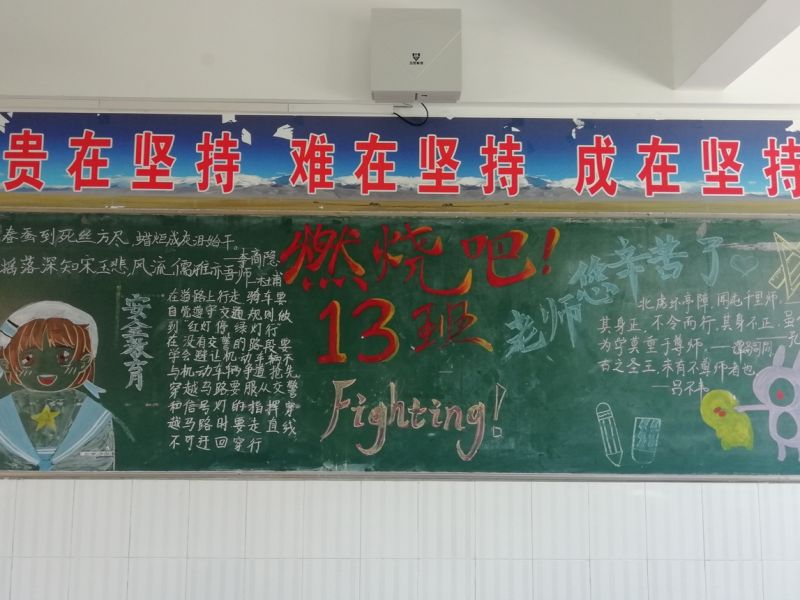 贵在坚持 难在坚持 成在坚持
春蚕到死丝方尽 蜡炬成灰泪始干。
——李商隐
摇落深知宋玉悲,风流儒雅亦吾师
——杜甫
安全教育
在道路上行走 骑车要
自觉遵守交通规则做
到"红灯停,绿灯行"
在没有交警的路段要
学会避让机动车辆不
与机动车辆争道抢先
穿越马路要服从交警
和信号灯的指挥穿
越马路时要走直线
不可迂回穿行
燃烧吧!
13班
Fighting!
老师您辛苦了
其身正,不令而行,其身不正,虽
为学莫重于尊师。——谭嗣同
古之圣王,未有不尊师者也
——吕不韦